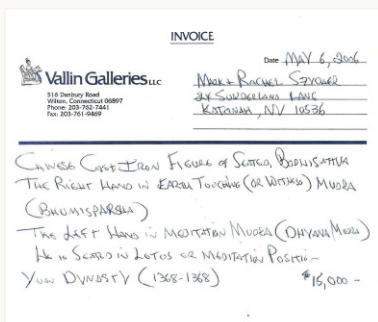 INVOICE
Date MAY 6, 2006
Vallin Galleries LLC
516 Danbury Road
Wilton, Connecticut 06897
Phone: 203-762-7441
Fax: 203-761-9469
MARK + RACHEL
SUNDERLAND LANE
KATONAH, NY 10536
CHINESE CAST IRON FIGURE OF SEATED, BODHISATTVA
THE RIGHT HAND IN EARTH TOUCHING (OR WITNESS) MUDRA
(BHUMISPARSHA)
THE LEFT HAND IN MEDITATION MUDRA (DHYANA MUDRA)
HE IS SEATED IN LOTUS OR MEDITATION POSITION
YUAN DYNASTY (1368-1368)
$15,000 -